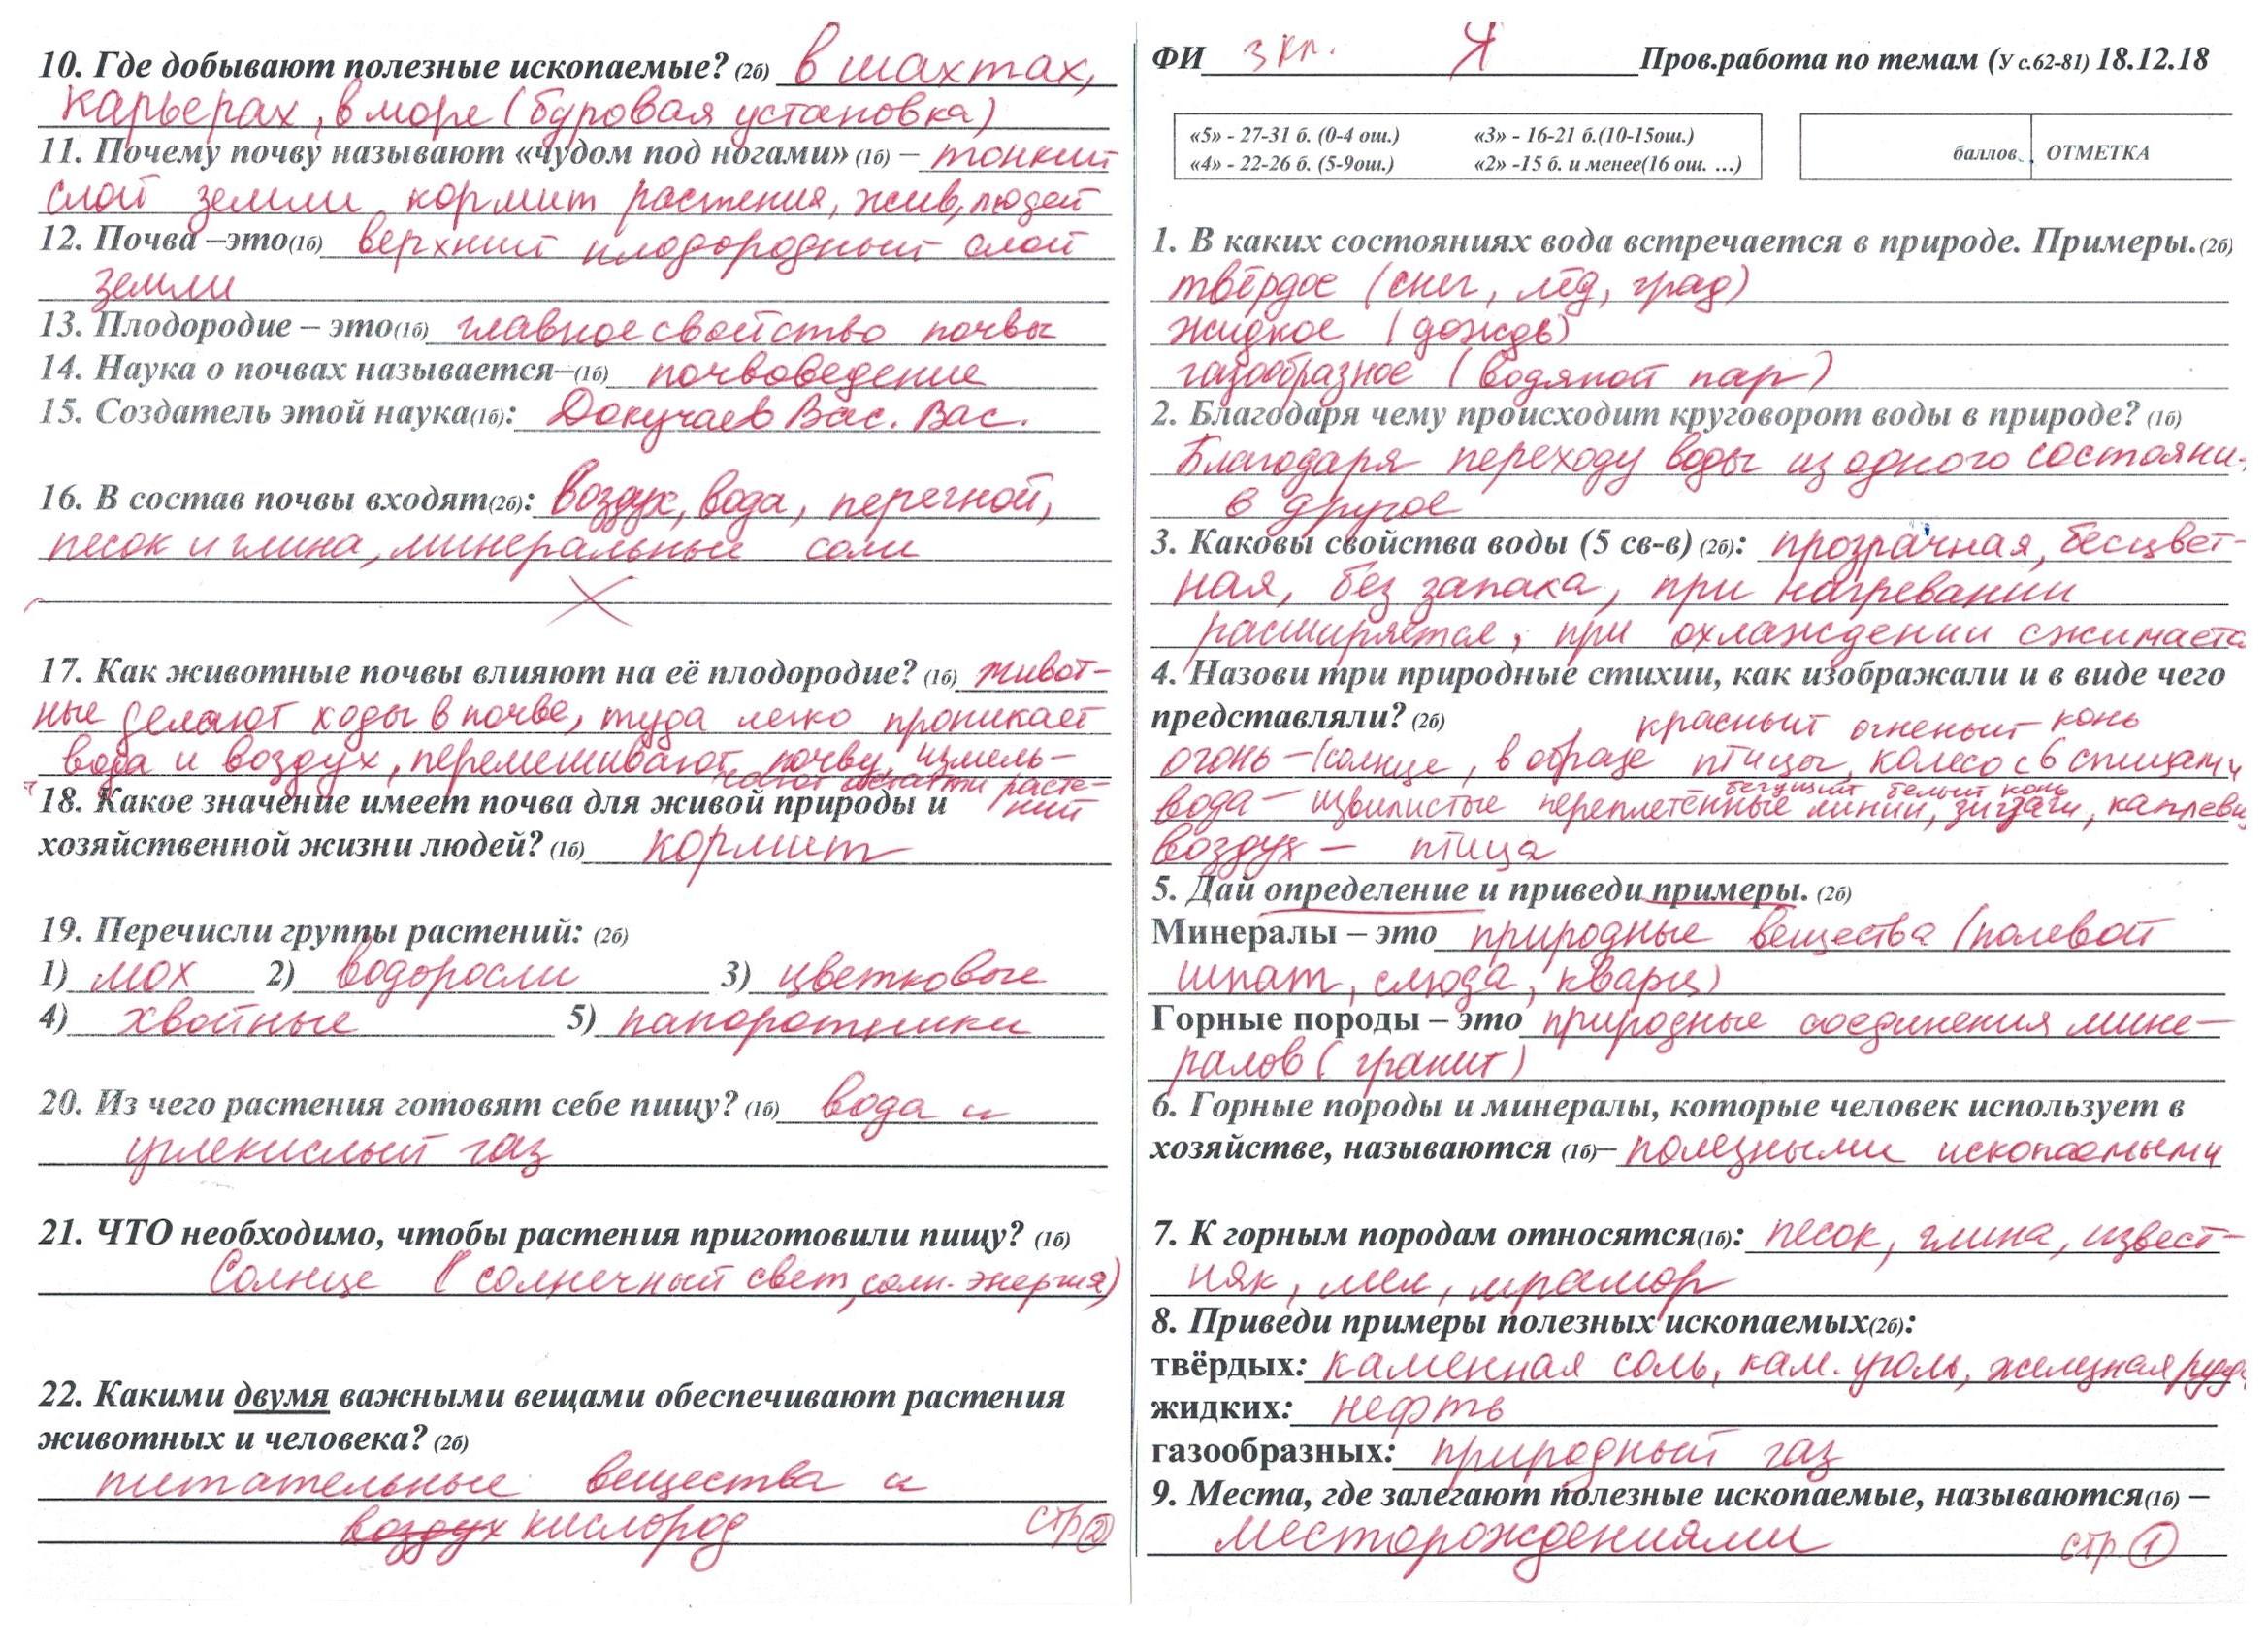 10. Где добывают полезные ископаемые? (2б) в шахтах,
карьерах, в море (буровая установка)
11. Почему почву называют «чудом под ногами» (1б) – тонкий
слой земли кормит растения, жив., людей
12. Почва –это(1б) верхний плодородный слой
земли
13. Плодородие – это(1б) главное свойство почвы
14. Наука о почвах называется–(1б) почвоведение
15. Создатель этой наука(1б): Докучаев Вас. Вас.
16. В состав почвы входят(2б): воздух, вода, перегной,
песок и глина, минеральные соли
17. Как животные почвы влияют на её плодородие? (1б) живот-
ные делают ходы в почве, туда легко проникает
вода и воздух, перемешивают почву, измель-
чают остатки расте-
ний
18. Какое значение имеет почва для живой природы и
хозяйственной жизни людей? (1б) кормит
19. Перечисли группы растений: (2б)
1) мох 2) водоросли 3) цветковые
4) хвойные 5) папоротники
20. Из чего растения готовят себе пищу? (1б) вода и
углекислый газ
21. ЧТО необходимо, чтобы растения приготовили пищу? (1б)
Солнце (солнечный свет, солн. энергия)
22. Какими двумя важными вещами обеспечивают растения
животных и человека? (2б)
питательные вещества и
воздух кислород стр 2
ФИ 3 кл. Я Пров.работа по темам (У с.62-81) 18.12.18
«5» - 27-31 б. (0-4 ош.) «3» - 16-21 б.(10-15ош.)
«4» - 22-26 б. (5-9ош.) «2» -15 б. и менее(16 ош. …)
баллов. ОТМЕТКА
1. В каких состояниях вода встречается в природе. Примеры.(2б)
твёрдое (снег, лёд, град)
жидкое (дождь)
газообразное (водяной пар)
2. Благодаря чему происходит круговорот воды в природе? (1б)
Благодаря переходу воды из одного состояни
в другое
3. Каковы свойства воды (5 св-в) (2б): прозрачная, бесцвет-
ная, без запаха, при нагревании
расширяется, при охлаждении сжимается
4. Назови три природные стихии, как изображали и в виде чего
представляли? (2б)
красный огненый конь
огонь – (солнце, в образе птицы, колесо с 6 спицами
бегущий белый конь
вода – извилистые переплетённые линии, зигзаги, капле
воздух – птица
5. Дай определение и приведи примеры. (2б)
Минералы – это природные вещества (полевой
шпат, слюда, кварц)
Горные породы – это природные соединения мине-
ралов (гранит)
6. Горные породы и минералы, которые человек использует в
хозяйстве, называются (1б)– полезными ископаемыми
7. К горным породам относятся(1б): песок, глина, извест-
няк, мел, мрамор
8. Приведи примеры полезных ископаемых(2б):
твёрдых: каменная соль, кам. уголь, железная руда
жидких: нефть
газообразных: природный газ
9. Места, где залегают полезные ископаемые, называются(1б) –
месторождениями стр. 1